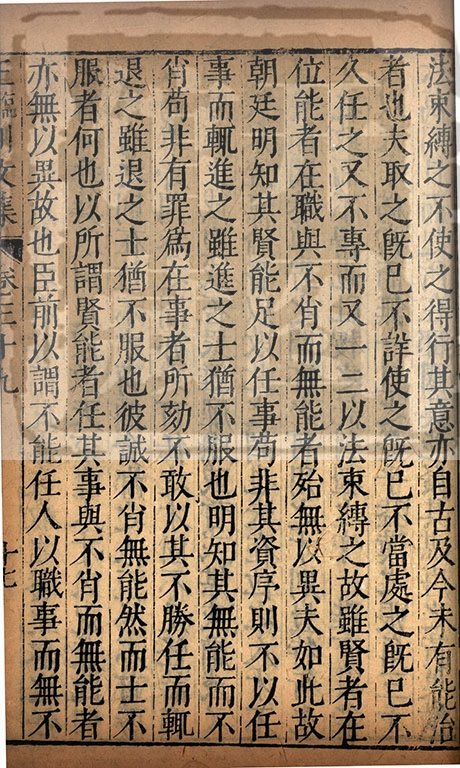 法束縛之不使之得行其意亦自古及今未有能治
者也夫取之旣已不詳使之旣已不當處之旣已不
久任之又不專而又一二以法束縛之故雖賢者在
位能者在職與不肖而無能者殆無以異夫如此故
朝廷明知其賢能足以任事苟非其資序則不以任
事而輒進之雖進之士猶不服也明知其無能而不
肖苟非有罪爲在事者所劾不敢以其不勝任而輒
退之雖退之士猶不服也彼誠不肖無能然而士不
服者何也以所謂賢能者任其事與不肖而無能者
亦無以異故也臣前以謂不能任人以職事而無不
王臨川文集 卷之三十九 十七